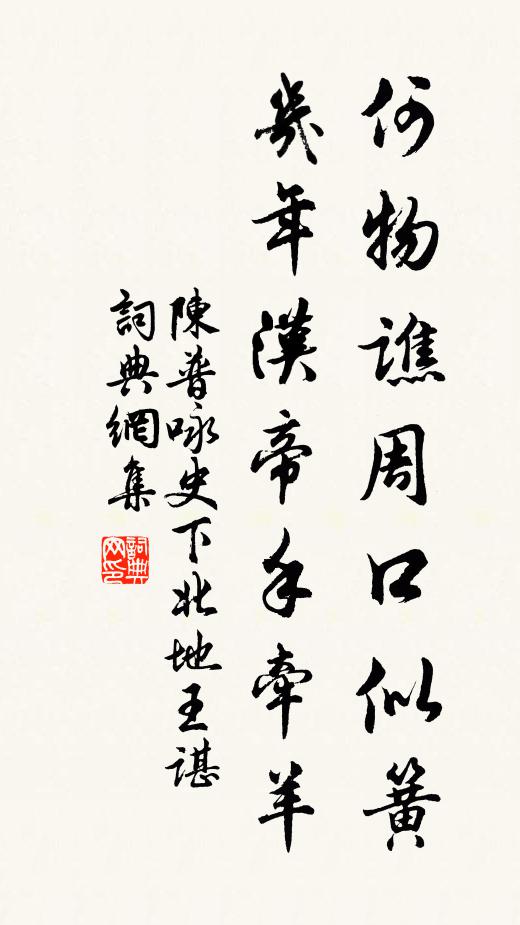 何物譙周口似簧
幾年漢帝手牽羊
陳普咏史下北地王諶
詞典網集
詞典网印